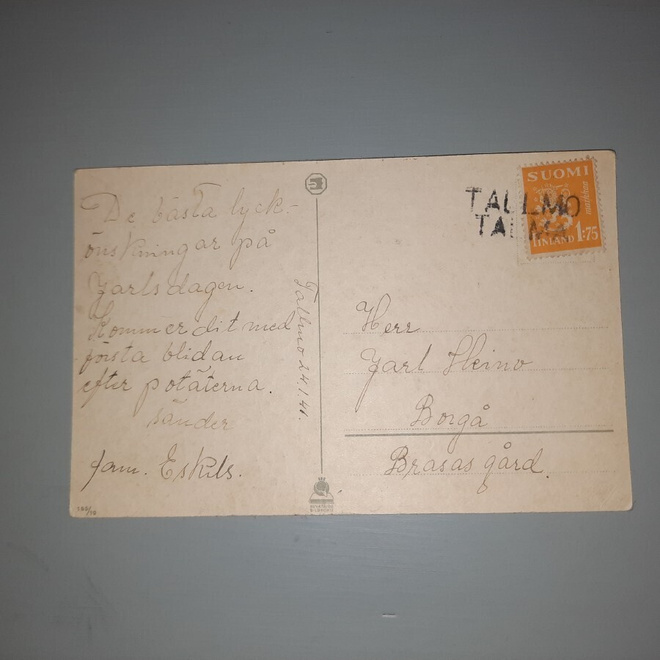 De bästa lyck-
önskningar på
Jarlsdagen.
Kommer dit med
första blidan
efter potäterna.
sänder
fam. Eskils.
Tallmo 24/1 41.
TALLMO
TALMA
SUOMI
FINLAND 1:75
Herr
Jarl Heino
Borgå
Brasas gård.